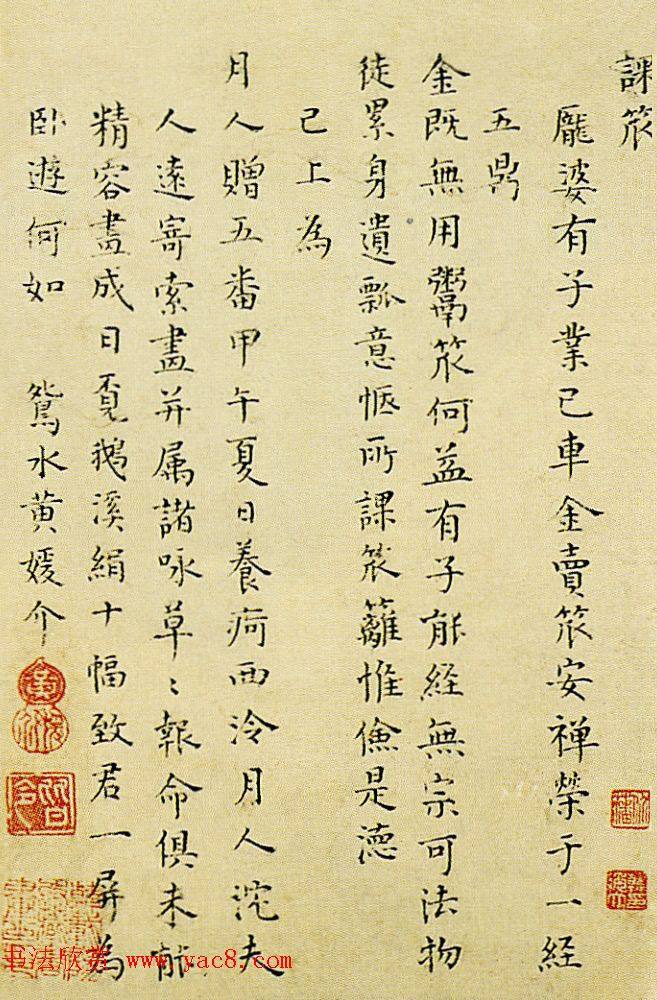 課笊
龐婆有子業已車金賣笊安禪榮于一経
五鼎
金既無用鬻笊何益有子能経無宗可法物
徒累身遺瓢意愜所課笊籬惟儉是德
已上為
月人贈五畨甲午夏日養疴西泠月人沈夫
人遠寄索畫并属諸咏草〻報命俱未能
精容畫成日覔鵝溪絹十幅致君一屏為
臥遊何如 鴛水黃媛介
书法欣赏 www.yac8.com